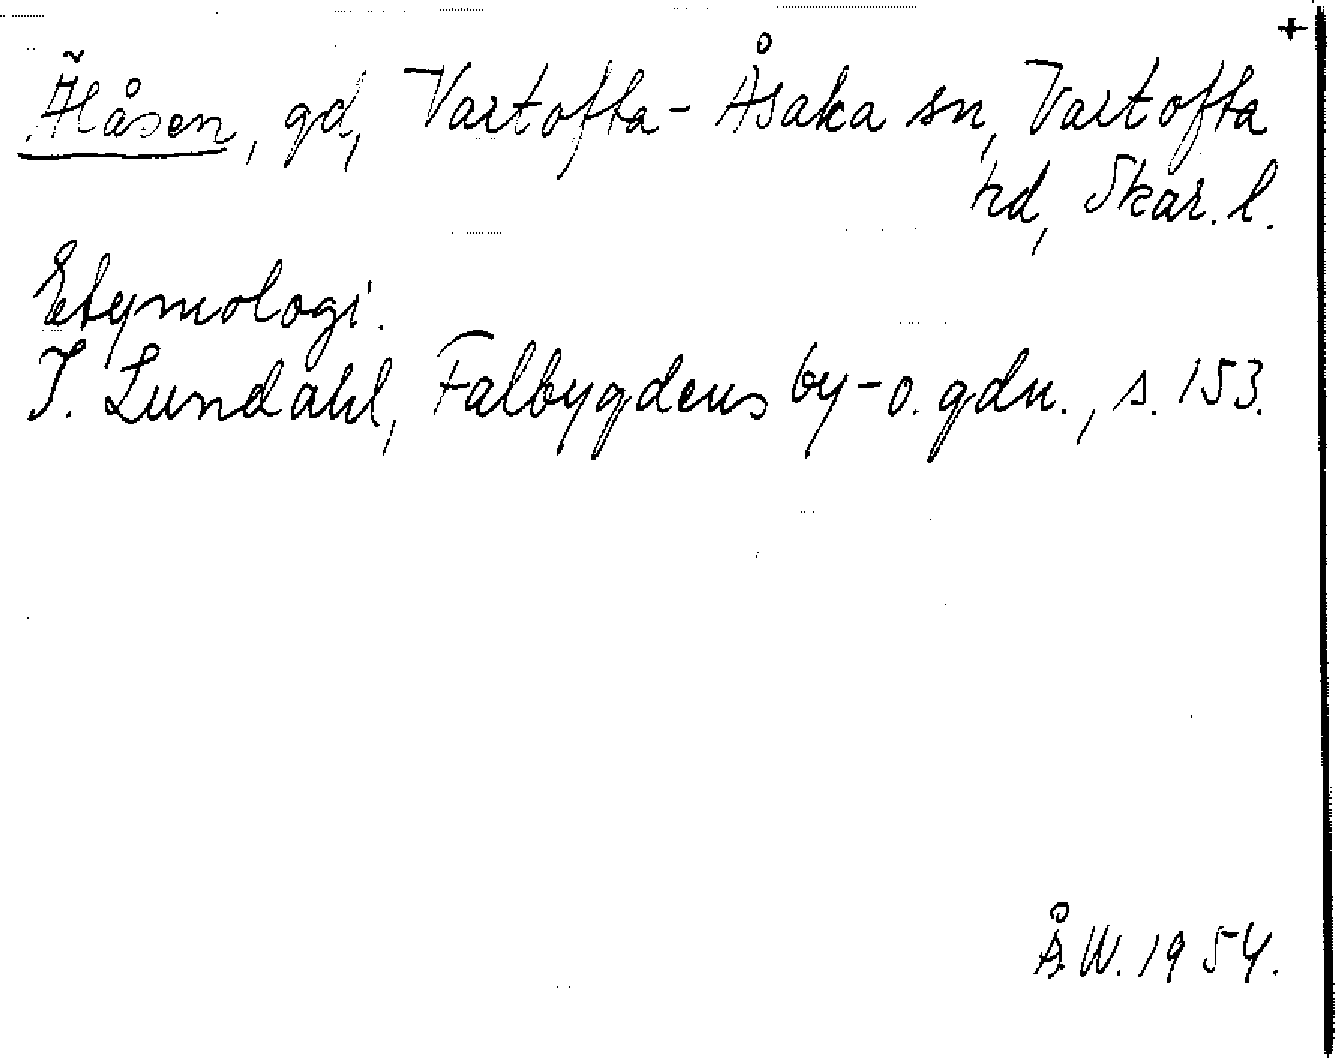 +
Älåsen, gd, Vartofta-Åsaka sn, Vartofta
hd, Skar. l.
Etymologi.
I. Lundahl, Falbygdens by- o. gdn., s. 153.
Å W. 1954.